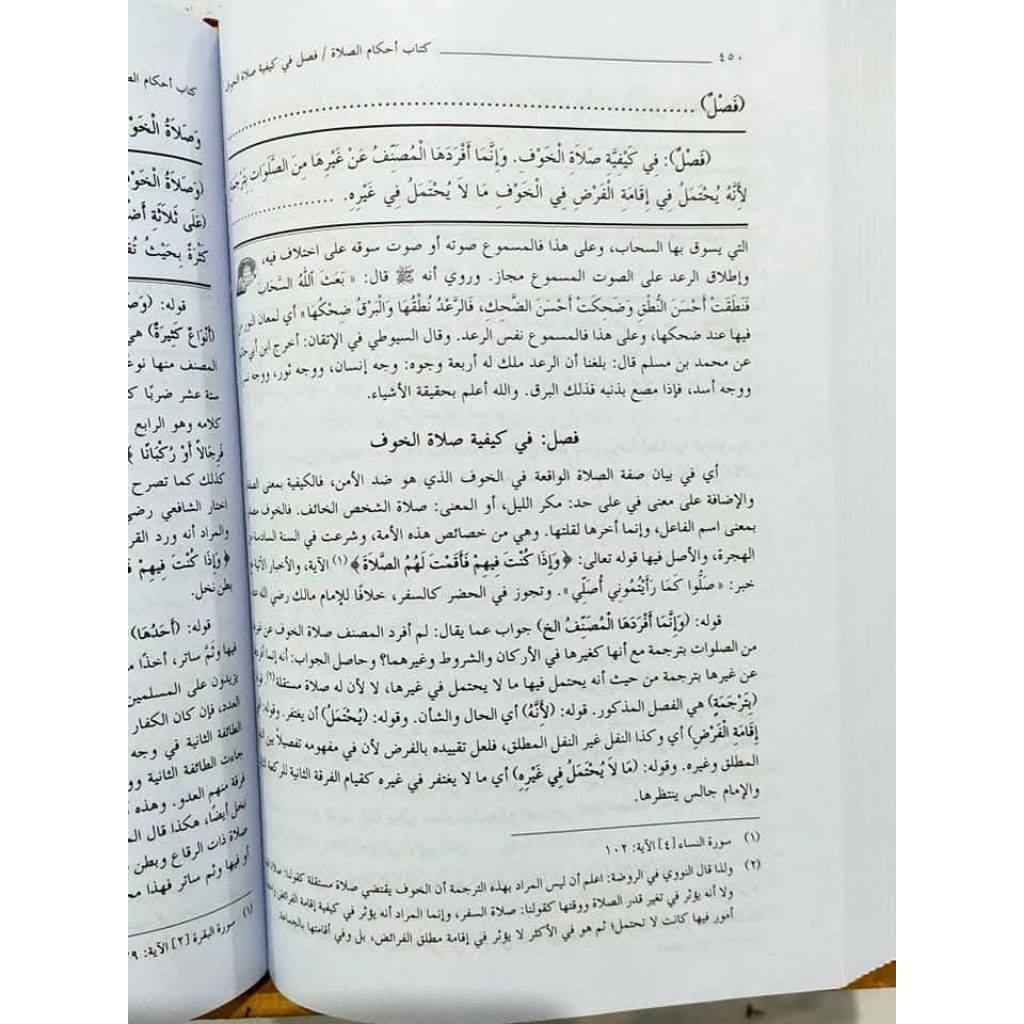 ٤٥٠ كتاب أحكام الصلاة / فصل في كيفية صلاة الخوف
(فَصْلٌ)
(فَصْلٌ): فِي كَيْفِيَّةِ صَلاَةِ الْخَوْفِ. وَإِنَّمَا أَفْرَدَهَا الْمُصَنِّفُ عَنْ غَيْرِهَا مِنَ الصَّلَوَاتِ بِتَرْجَمَةٍ
لأَنَّهُ يُحْتَمَلُ فِي إِقَامَةِ الْفَرْضِ فِي الْخَوْفِ مَا لاَ يُحْتَمَلُ فِي غَيْرِهِ.
التي يسوق بها السحاب، وعلى هذا فالمسموع صوته أو صوت سوقه على اختلاف فيه،
وإطلاق الرعد على الصوت المسموع مجاز. وروي أنه ﷺ قال: «بَعَثَ اللهُ السَّحَابَ
فَنَطَقَتْ أَحْسَنَ النُّطْقِ وَضَحِكَتْ أَحْسَنَ الضَّحِكِ، فَالرَّعْدُ نُطْقُهَا وَالْبَرْقُ ضِحْكُهَا» أي لمعان النور من
فيها عند ضحكها، وعلى هذا فالمسموع نفس الرعد. وقال السيوطي في الإتقان: أخرج ابن أبي
عن محمد بن مسلم قال: بلغنا أن الرعد ملك له أربعة وجوه: وجه إنسان، ووجه ثور، ووجه
ووجه أسد، فإذا مصع بذنبه فذلك البرق. والله أعلم بحقيقة الأشياء.
فصل: في كيفية صلاة الخوف
أي في بيان صفة الصلاة الواقعة في الخوف الذي هو ضد الأمن، فالكيفية بمعنى
والإضافة على معنى في على حد: مكر الليل، أو المعنى: صلاة الشخص الخائف. فالخوف
بمعنى اسم الفاعل، وإنما أخرها لقلتها. وهي من خصائص هذه الأمة، وشرعت في السنة السادسة من
الهجرة، والأصل فيها قوله تعالى: ﴿وَإِذَا كُنْتَ فِيهِمْ فَأَقَمْتَ لَهُمُ الصَّلاَةَ﴾(١) الآية، والأخبار الآتية
خبر: «صَلُّوا كَمَا رَأَيْتُمُونِي أُصَلِّي». وتجوز في الحضر كالسفر، خلافًا للإمام مالك رضي الله
قوله: (وَإِنَّمَا أَفْرَدَهَا الْمُصَنِّفُ الخ) جواب عما يقال: لم أفرد المصنف صلاة الخوف عن
من الصلوات بترجمة مع أنها كغيرها في الأركان والشروط وغيرهما؟ وحاصل الجواب: أنه إنما
عن غيرها بترجمة من حيث أنه يحتمل فيها ما لا يحتمل في غيرها، لا لأن له صلاة مستقلة(٢)
(بِتَرْجَمَةٍ) هي الفصل المذكور. قوله: (لأَنَّهُ) أي الحال والشأن. وقوله: (يُحْتَمَلُ) أن يغتفر. وقوله:
إِقَامَةِ الْفَرْضِ) أي وكذا النفل غير النفل المطلق، فلعل تقييده بالفرض لأن في مفهومه تفصيلاً بين
المطلق وغيره. وقوله: (مَا لاَ يُحْتَمَلُ فِي غَيْرِهِ) أي ما لا يغتفر في غيره كقيام الفرقة الثانية للركعة
والإمام جالس ينتظرها.
(١) سورة النساء [٤] الآية: ١٠٢
(٢) ولذا قال النووي في الروضة: اعلم أن ليس المراد بهذه الترجمة أن الخوف يقتضي صلاة مستقلة كقولنا: صلاة
ولا أنه يؤثر في تغير قدر الصلاة ووقتها كقولنا: صلاة السفر، وإنما المراد أنه يؤثر في كيفية إقامة الفرائض
أمور فيها كانت لا تحتمل؛ ثم هو في الأكثر لا يؤثر في إقامة مطلق الفرائض، بل وفي أقامتها بالجماعة.
كتاب أحكام
وَصَلاَةُ الْخَوْفِ
(وَصَلاَةُ الْخَوْفِ
(عَلَى ثَلاَثَةِ
كَثْرَةٌ بِحَيْثُ
قوله:
(أَنْوَاعٌ كَثِيرَةٌ) هي
المصنف منها
ستة عشر ضربًا
كلامه وهو الرابع
فَرِجَالاً أَوْ رُكْبَانًا﴾
كذلك كما تصرح
اختار الشافعي رضي
والمراد أنه ورد
﴿وَإِذَا كُنْتَ فِيهِمْ
بطن نخل.
قوله: (أَحَدُهَا)
فيها وثَمَّ ساتر، أخذًا
يزيدون على المسلمين
العدد، فإن كان الكفار
الطائفة الثانية في وجه
جاءت الطائفة الثانية
فرقة منهم العدو. وهذه
نخل أيضًا، هكذا قال
صلاة ذات الرقاع وبطن
أو فيها وثم ساتر فهذا
(١) سورة البقرة [٢] الآية: